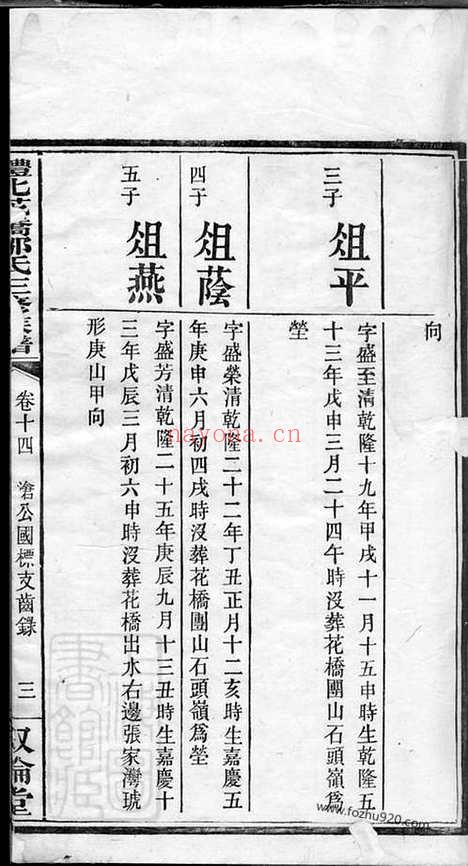 向
三子
俎平
字盛至清乾隆十九年甲戌十一月十五申時生乾隆五
十三年戊申三月二十四午時沒葬花橋團山石頭嶺爲
塋
四子
俎蔭
字盛榮清乾隆二十二年丁丑正月十二亥時生嘉慶五
年庚申六月初四戌時沒葬花橋團山石頭嶺爲塋
五子
俎燕
字盛芳清乾隆二十五年庚辰九月十三丑時生嘉慶十
三年戊辰三月初六申時沒葬花橋出水右邊張家灣琥
形庚山甲向
氏三修族譜
卷十四
滄公國標支齒錄
三
叙倫堂
nayona.cn
www.fozhu920.com